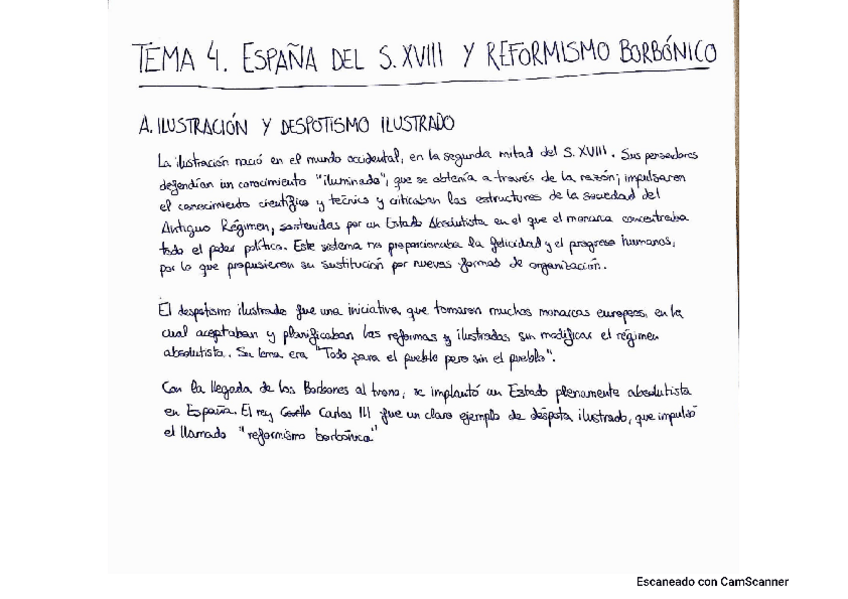 TEMA 4. ESPAÑA DEL S.XVIII Y REFORMISMO BORBÓNICO
A. ILUSTRACIÓN Y DESPOTISMO ILUSTRADO
La ilustración nació en el mundo occidental, en la segunda mitad del S. XVIII. Sus pensadores
defendían un conocimiento "iluminado", que se obtenía a través de la razón; impulsaron
el conocimiento científico y técnico y criticaban las estructuras de la sociedad del
Antiguo Régimen, sostenidas por un Estado Absolutista en el que el monarca concentraba
todo el poder político. Este sistema no proporcionaba la felicidad y el progreso humanos,
por lo que propusieron su sustitución por nuevas formas de organización.
El despotismo ilustrado fue una iniciativa que tomaron muchos monarcas europeos, en la
cual aceptaban y planificaban las reformas y ilustradas sin modificar el régimen
absolutista. Su lema era "Todo para el pueblo pero sin el pueblo".
Con la llegada de los Borbones al trono, se implantó un Estado plenamente absolutista
en España. El rey Carlos III fue un claro ejemplo de déspota ilustrado, que impulsó
el llamado "reformismo borbónico"
Escaneado con CamScanner